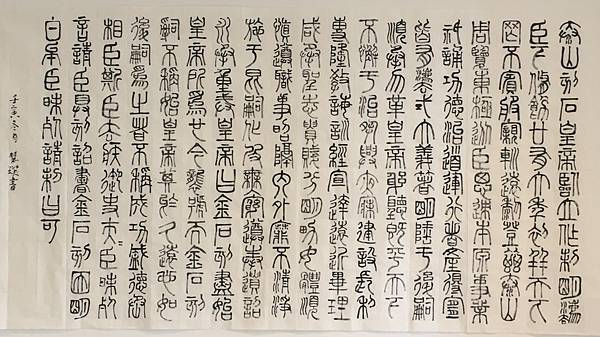 泰山刻石皇帝臨立作制明法
臣下脩飭廿有六年初并天下
罔不賓服親巡遠黎登茲泰山
周覽東極從臣思迹本原事業
祇誦功德治道運行者產得宜
皆有法式大義著明陲于後嗣
順承勿革皇帝躬聽既平天下
不懈于治夙興夜寐建設長利
專隆教誨訓經宣達遠近畢理
咸承聖志貴賤分明男女體順
慎遵職事昭隔內外靡不清淨
施于昆嗣化及無窮遵奉遺詔
永承重戒皇帝曰金石刻盡始
皇帝所為也今襲號而金石刻
辭不稱始皇帝其於久遠也如
後嗣為之者不稱成功盛德丞
相臣斯臣去疾御史夫=臣昧死
言臣請具刻詔書金石刻因明
白矣臣昧死請制曰可
壬寅冬月 書